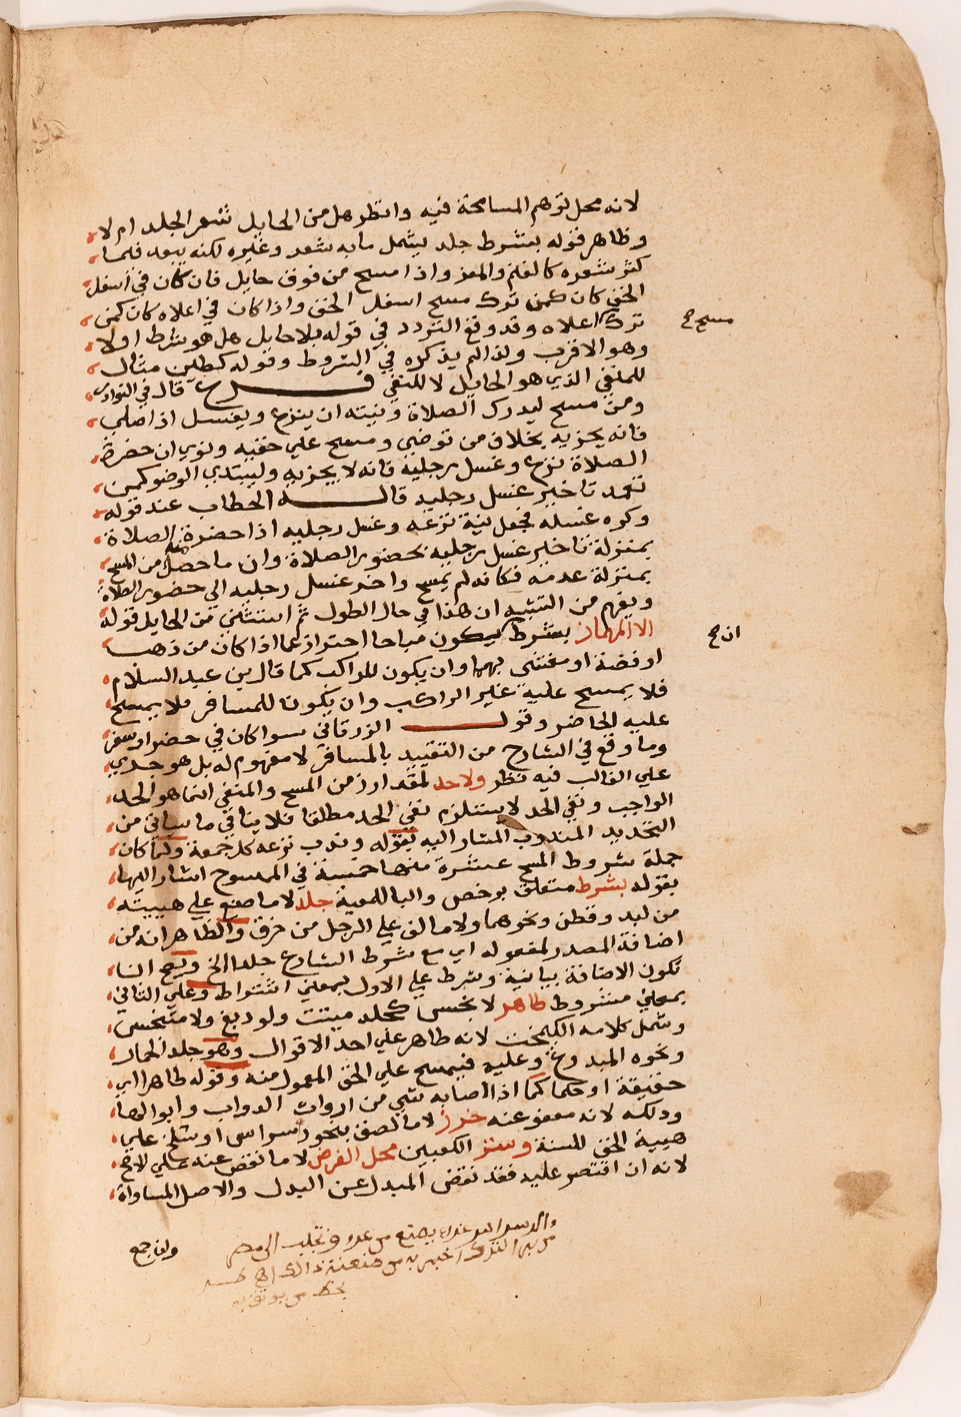 لانه محل توهم المسامحة فيه وانظر هل من الحايل شعر الجلد ام لا
وظاهر قوله بشرط جلد يشمل ما به شعر وغيره لكنه يبعد فيما
كثر شعره كالغنم والمعز واذا مسح من فوق حايل فان كان في اسفل
الخف كان كمن ترك مسح اسفل الخف واذا كان في اعلاه كان كمن
ترك اعلاه وقد وقع التردد في قوله بلا حايل هل هو شرط اولا
مسح صح
وهو الاقرب ولذا لم يذكره في الشروط وقوله كطين مثال
للمنفي الذي هو الحايل لا للنفي فرع قال في النوادر
ومن مسح ليدرك الصلاة ونيته ان ينزع ويغسل اذا صلى
فانه يجزيه بخلاف من توضي ومسح علي خفيه ونوي ان حضرة
الصلاة نزع وغسل رجليه فانه لا يجزيه وليبتدي الوضو كمن
تعمد تاخير غسل رجليه قاله الحطاب عند قوله
وكره غسله فجعل نية نزعه وغسل رجليه اذا حضرة الصلاة
بمنزلة تاخير غسل رجليه لحضور الصلاة وان ما حصل منه من المسح
بمنزلة عدمه فكانه لم يمسح واخر غسل رجليه الي حضور الصلاة
ويفهم من التشبيه ان هذا في حال الطول ثم استثنى من الحايل قوله
الا المهماز بشرط يكون مباحا احترازا عما اذا كان من ذهب
ان صح
او فضة او مغشى بهما وان يكون للراكب كما قال بن عبد السلام
فلا يمسح عليه غير الراكب وان يكون للمسافر فلا يمسح
عليه الحاضر وقول الزرقاني سوا كان في حضر او سفر
وما وقع في الشارح من التقييد بالمسافر لا مفهوم له بل هو جري
علي الغالب فيه نظر ولاحد لمقدار زمن المسح والمنفي انما هو الحد
الواجب ونفي الحد لا يستلزم نفي الحد مطلقا فلا ينافي ما سياتي من
التحديد المندوب المشار اليه بقوله وندب نزعه كل جمعة ولما كان
جملة شروط المسح عشرة منها خمسة في الممسوح اشار اليها
بقوله بشرط متعلق برخص والبا للمعية جلد لا ما صنع علي هييته
من لبد وقطن ونحوهما ولا ما لف علي الرجل من خرق والظاهر انه من
اضافة المصدر لمفعوله اي مع شرط الشارع جلدا الخ ويصح انـ
تكون الاضافة بيانية وشرط علي الاول بمعني اشتراط وعلي الثاني
بمعني مشروط طاهر لا نجس كجلد ميتت ولو دبغ ولا متنجس
وشمل كلامه الكيمخت لانه طاهر علي احد الاقوال وهو جلد الحمار
ونحوه المدبوغ وعليه فيمسح علي الخف المعمول منه وقوله طاهر اي
حقيقة او حكما كما اذا اصابه شي من ارواث الدواب وابوالها
وذلكه لانه معفو عنه خرز لا ما لصق بنحو رسراس او سلخ علي
هيية الخف للسنة وستر الكعبين محل الفرض لا ما نقص عنه علي الاصح
لانه ان اقتصر عليه فقد نقض المبدل عن البدل والاصل المساواة
ولو جمع